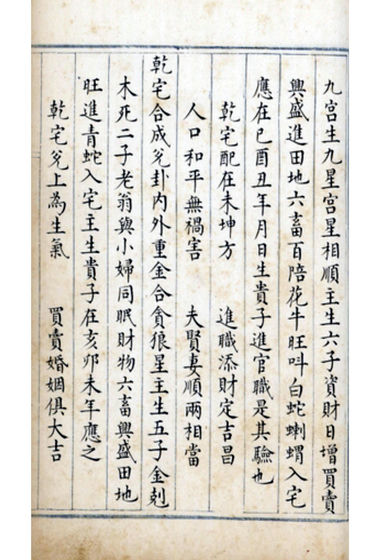 九宫生九星宫星相順主生六子資財日增買賣
興盛進田地六畜百陪花牛旺叫白蛇蝌蝟入宅
應在巳酉丑年月日生貴子進官職是其驗也
乾宅配在未坤方　進職添財定吉昌
人口和平無禍害　夫賢妻順兩相當
乾宅合成兌卦内外重金合貪狼星主生五子金剋
木死二子老翁與小婦同眠財物六畜興盛田地
旺進青蛇入宅主生貴子在亥卯未年應之
乾宅兌上為生氣　買賣婚姻俱大吉